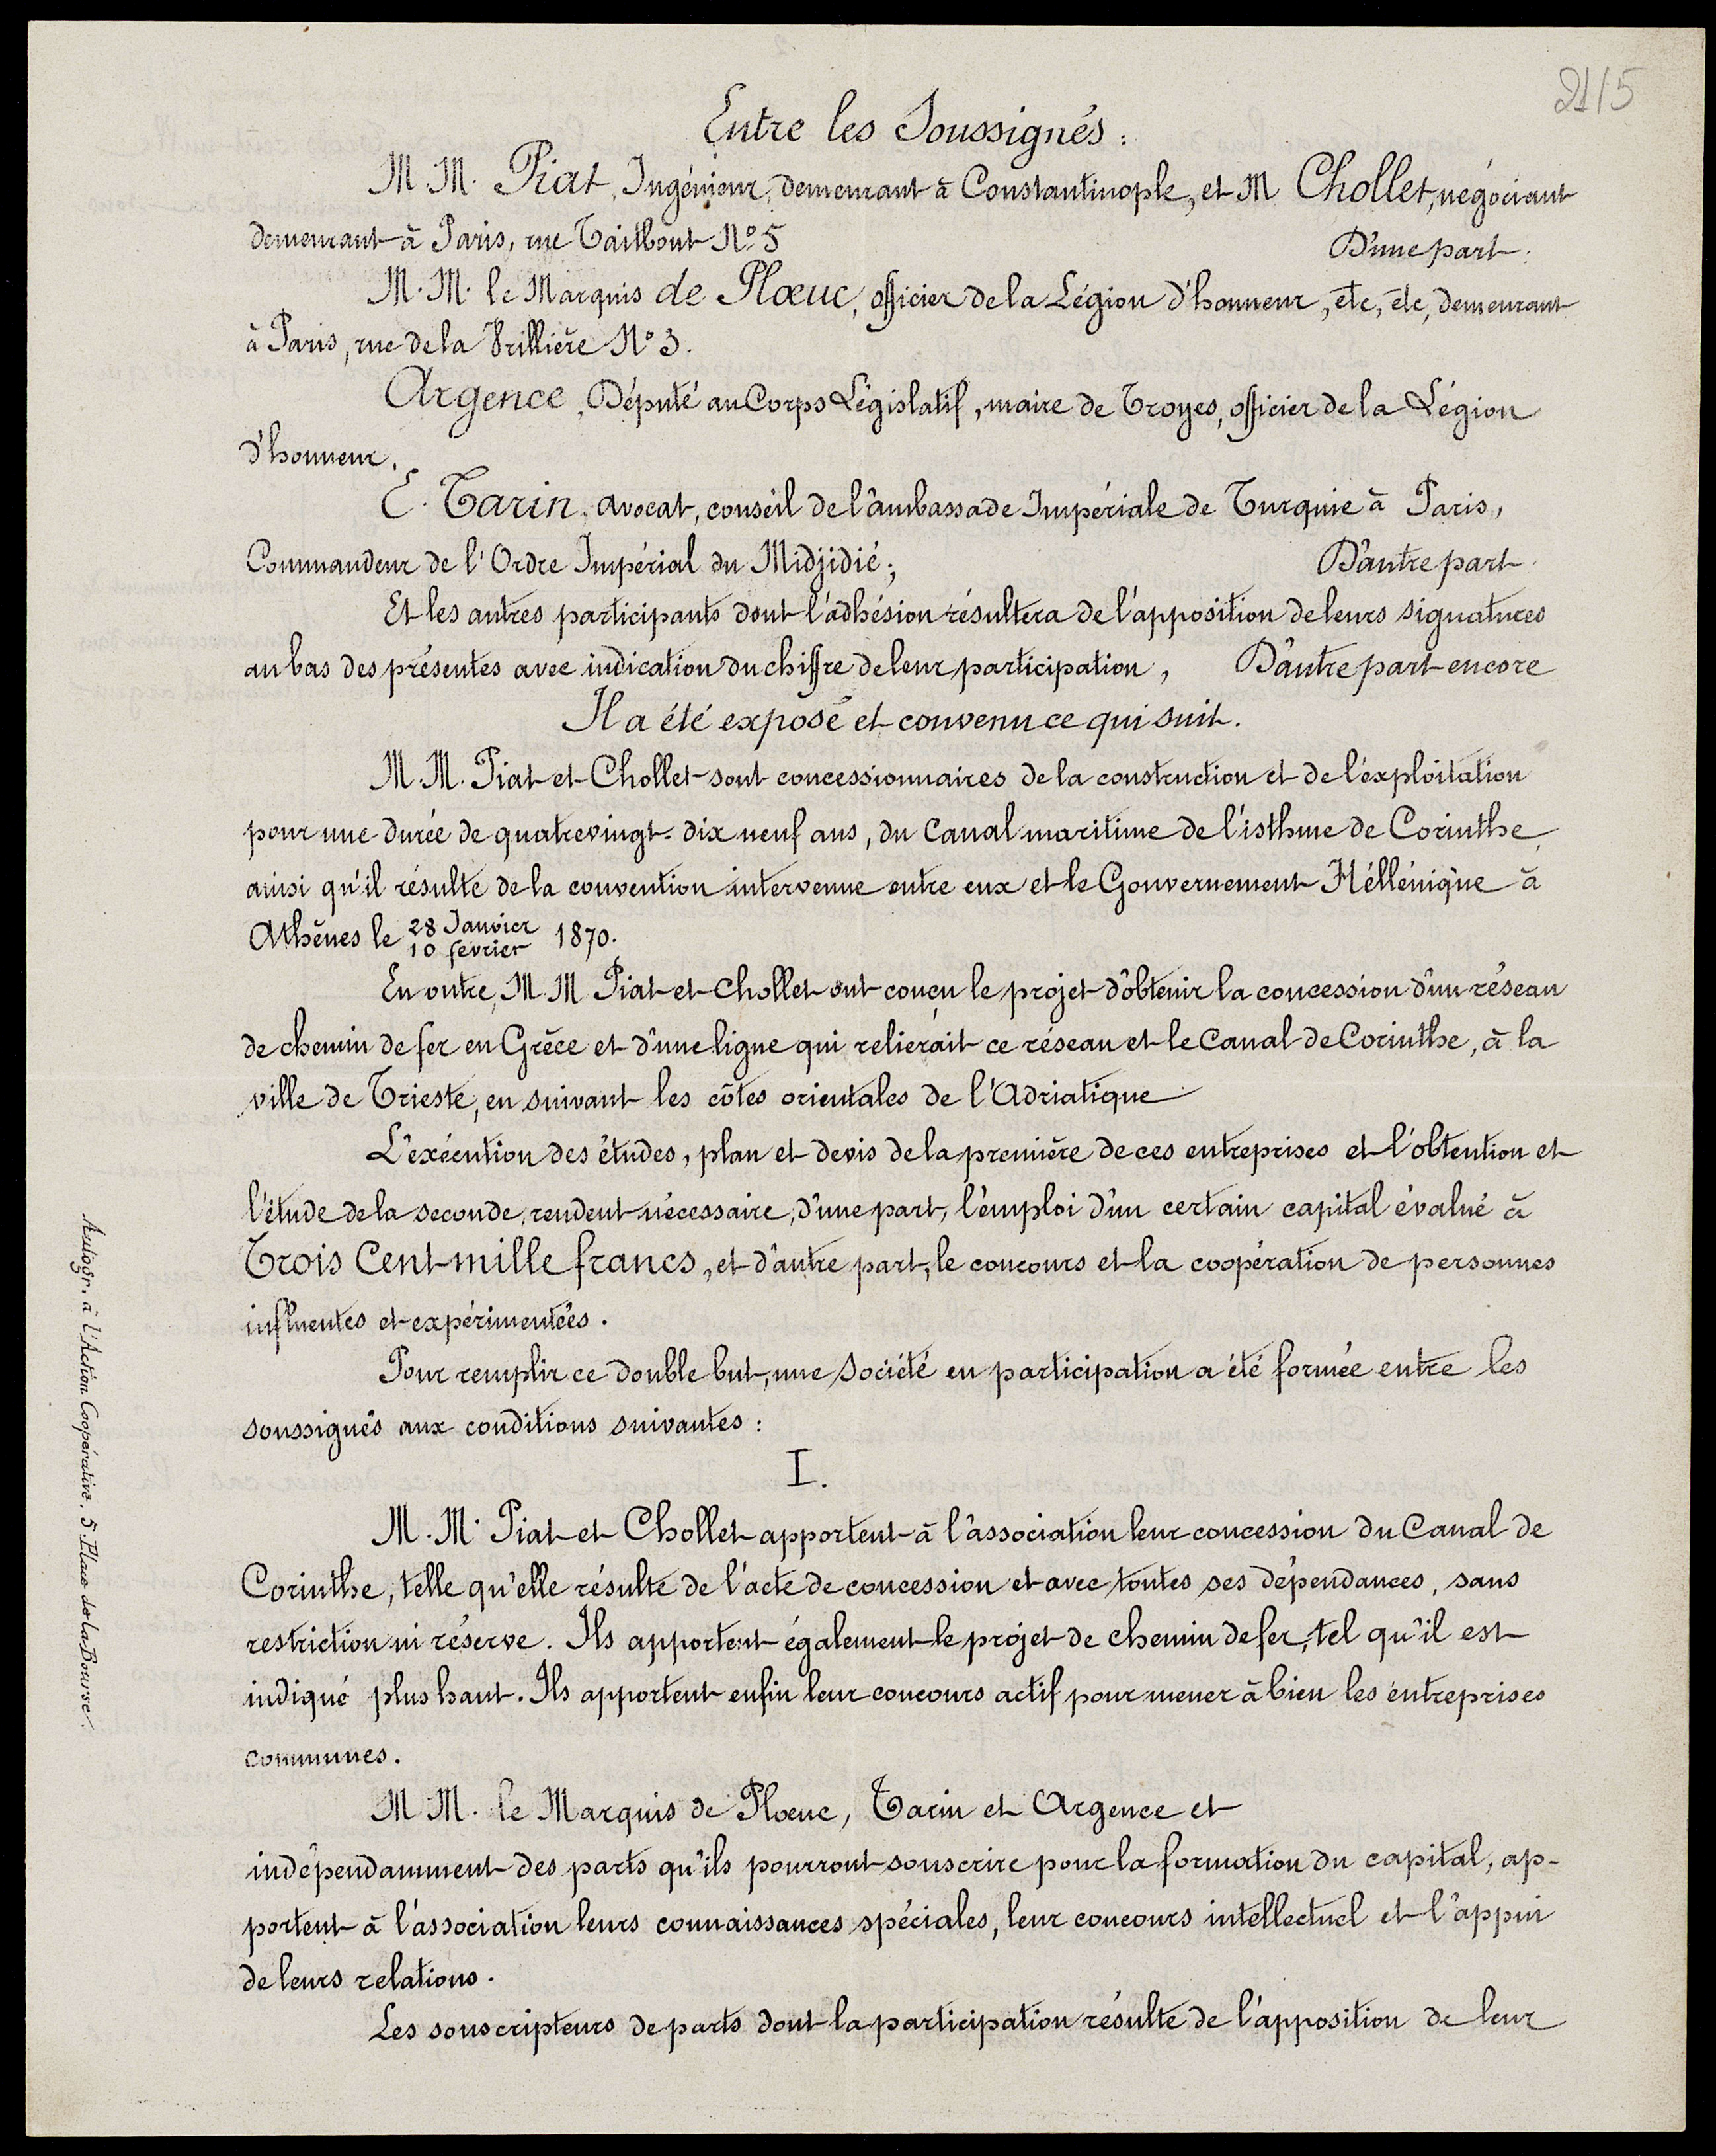 2115
Entre les Soussignés :
M.M. Piat, Ingénieur, demeurant à Constantinople, et M Chollet, négociant
demeurant à Paris, rue Taitbout No 5 D'une part.
M.M. le Marquis de Plœuc, officier de la Légion d'honneur, etc, etc, demeurant
à Paris, rue de la Vrillière No 3.
Argence, Député au Corps Législatif, maire de Troyes, officier de la Légion
d'honneur.
E. Tarin, avocat, conseil de l'ambassade Impériale de Turquie à Paris,
Commandeur de l'Ordre Impérial du Midjidié; D'autre part.
Et les autres participants dont l'adhésion résultera de l'apposition de leurs signatures
au bas des présentes avec indication du chiffre de leur participation, D'autre part encore
Il a été exposé et convenu ce qui suit.
M.M. Piat et Chollet sont concessionnaires de la construction et de l'exploitation
pour une durée de quatrevingt-dix neuf ans, du Canal maritime de l'isthme de Corinthe,
ainsi qu'il résulte de la convention intervenue entre eux et le Gouvernement Héllénique à
Athènes le 28 Janvier / 10 février 1870.
En outre, M.M Piat et Chollet ont conçu le projet d'obtenir la concession d'un réseau
de chemin de fer en Grèce et d'une ligne qui relierait ce réseau et le Canal de Corinthe, à la
ville de Trieste, en suivant les côtes orientales de l'Adriatique
L'exécution des études, plan et devis de la première de ces entreprises et l'obtention et
l'étude de la seconde, rendent nécessaire, d'une part, l'emploi d'un certain capital évalué à
Trois Cent mille francs, et d'autre part, le concours et la coopération de personnes
influentes et expérimentées.
Pour remplir ce double but, une société en participation a été formée entre les
soussignés aux conditions suivantes :
I.
M.M. Piat et Chollet apportent à l'association leur concession du Canal de
Corinthe, telle qu'elle résulte de l'acte de concession et avec toutes ses dépendances, sans
restriction ni réserve. Ils apportent également le projet de chemin de fer, tel qu'il est
indiqué plus haut. Ils apportent enfin leur concours actif pour mener à bien les entreprises
communes.
M.M. le Marquis de Plœuc, Tarin et Argence et
indépendamment des parts qu'ils pourront souscrire pour la formation du capital, ap-
portent à l'association leurs connaissances spéciales, leur concours intellectuel et l'appui
de leurs relations.
Les souscripteurs de parts dont la participation résulte de l'apposition de leur
Autogr. à l'Action Coopérative, 5 Place de la Bourse.